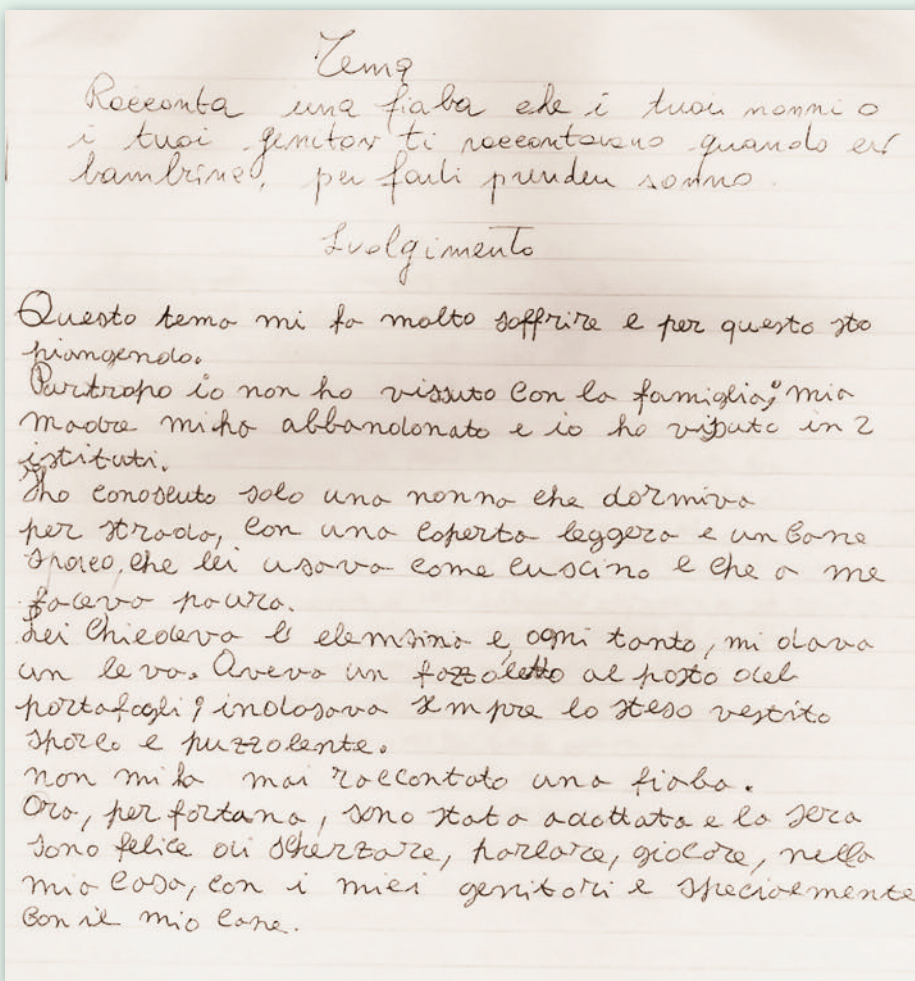 Tema
Racconta una fiaba che i tuoi nonni o
i tuoi genitori ti raccontavano quando eri
bambina, per farti prender sonno.
Svolgimento
Questo tema mi fa molto soffrire e per questo sto
piangendo.
Purtropo io non ho vissuto con la famiglia; mia
madre mi ha abbandonato e io ho vissuto in 2
istituti.
Ho conosciuto solo una nonna che dormiva
per strada, con una coperta leggera e un cane
sporco, che lei usava come cuscino e che a me
faceva paura.
Lei chiedeva l'elemsina e, ogni tanto, mi dava
un leva. Aveva un fazzoletto al posto del
portafogli; indosava sempre lo steso vestito
sporco e puzzolente.
non mi ha mai raccontato una fiaba.
Ora, per fortuna, sono stata adottata e la sera
sono felice di scherzare, parlare, giocare, nella
mia casa, con i miei genitori e specialmente
con il mio cane.